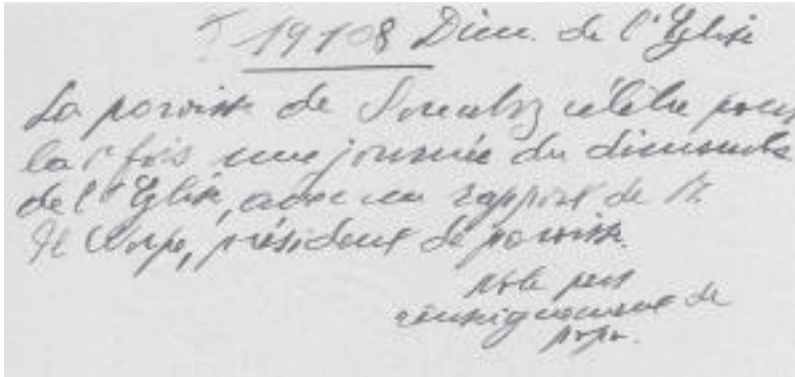 19108 Dim. de l'Eglise
La paroisse de Sonvilier célèbre pour
la 1e fois une journée du dimanche
de l'Eglise, avec un rapport de M.
président de paroisse.
Note pers
renseignement de
papa.